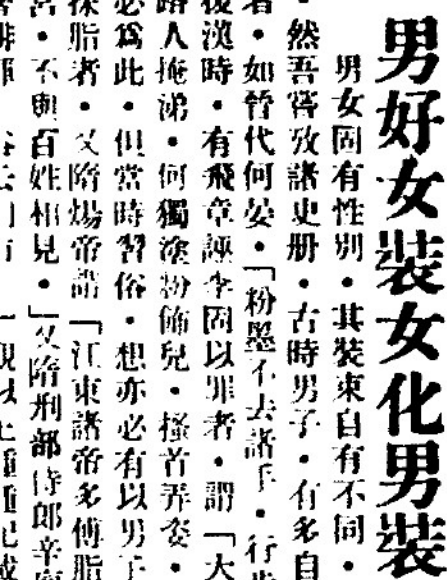 男好女裝女化男裝
男女固有性別・其裝束自有不同・
然吾嘗攷諸史册・古時男子・有多自
者・如晉代何晏・「粉墨不去諸手・行步
後漢時・有飛章誣李固以罪者・謂「大
路人掩涕・何獨塗粉飾兒・搔首弄姿・
必爲此・但當時習俗・想亦必有以男子
脂者・又隋煬帝謂「江東諸帝多傅脂
宮・不與百姓相見・」又隋刑部侍郎辛